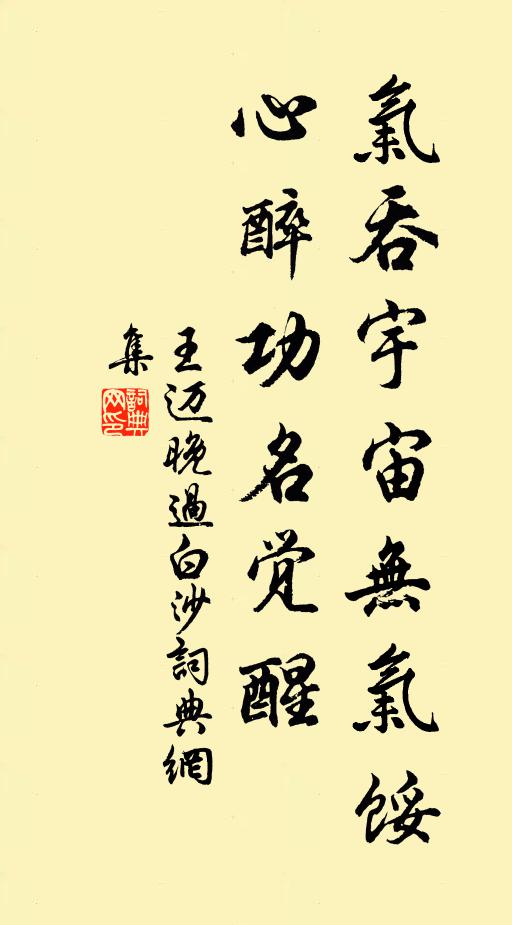 氣吞宇宙無氣餒
心醉功名觉醒
王迈晚過白沙詞典網
集
詞典网印